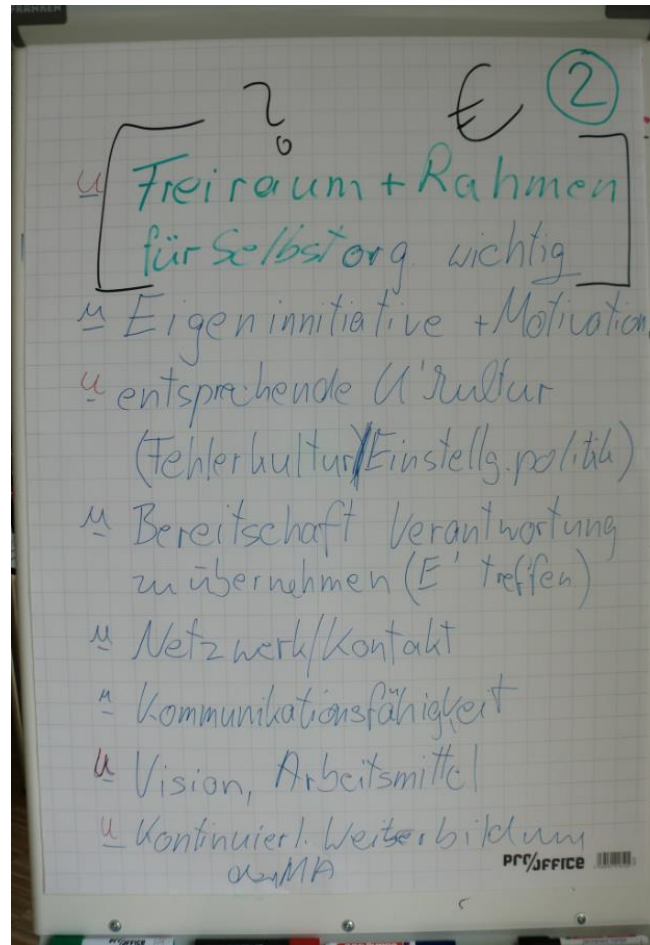 FRANKEN
? € 2
u Freiraum + Rahmen
für Selbstorg. wichtig
M Eigeninnitiative + Motivation
u entsprechende U'kultur
(Fehlerkultur/Einstellg.politik)
M Bereitschaft Verantwortung
zu übernehmen (E' treffen)
M Netzwerk/Kontakt
M Kommunikationsfähigkeit
u Vision, Arbeitsmittel
u Kontinuierl. Weiterbildung
der MA
PRO/OFFICE